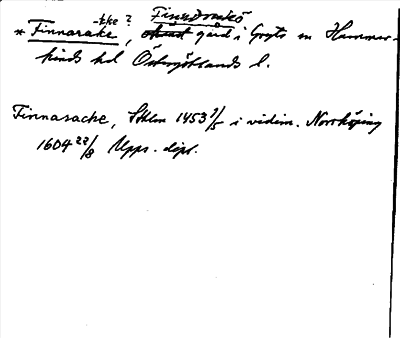 -åke ? Finndomsö
* Finnarake, gård i Gryts sn Hammar-
kinds hd Östergötlands l.
Finnasache, Sthlm 1453 9/5 i vidim. Norrköping
1604 22/8 Upps. dipl.